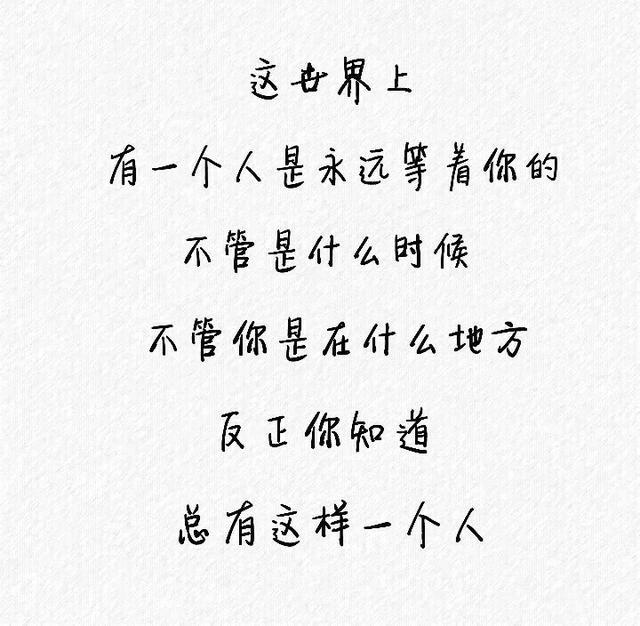 这世界上
有一个人是永远等着你的
不管是什么时候
不管你是在什么地方
反正你知道
总有这样一个人